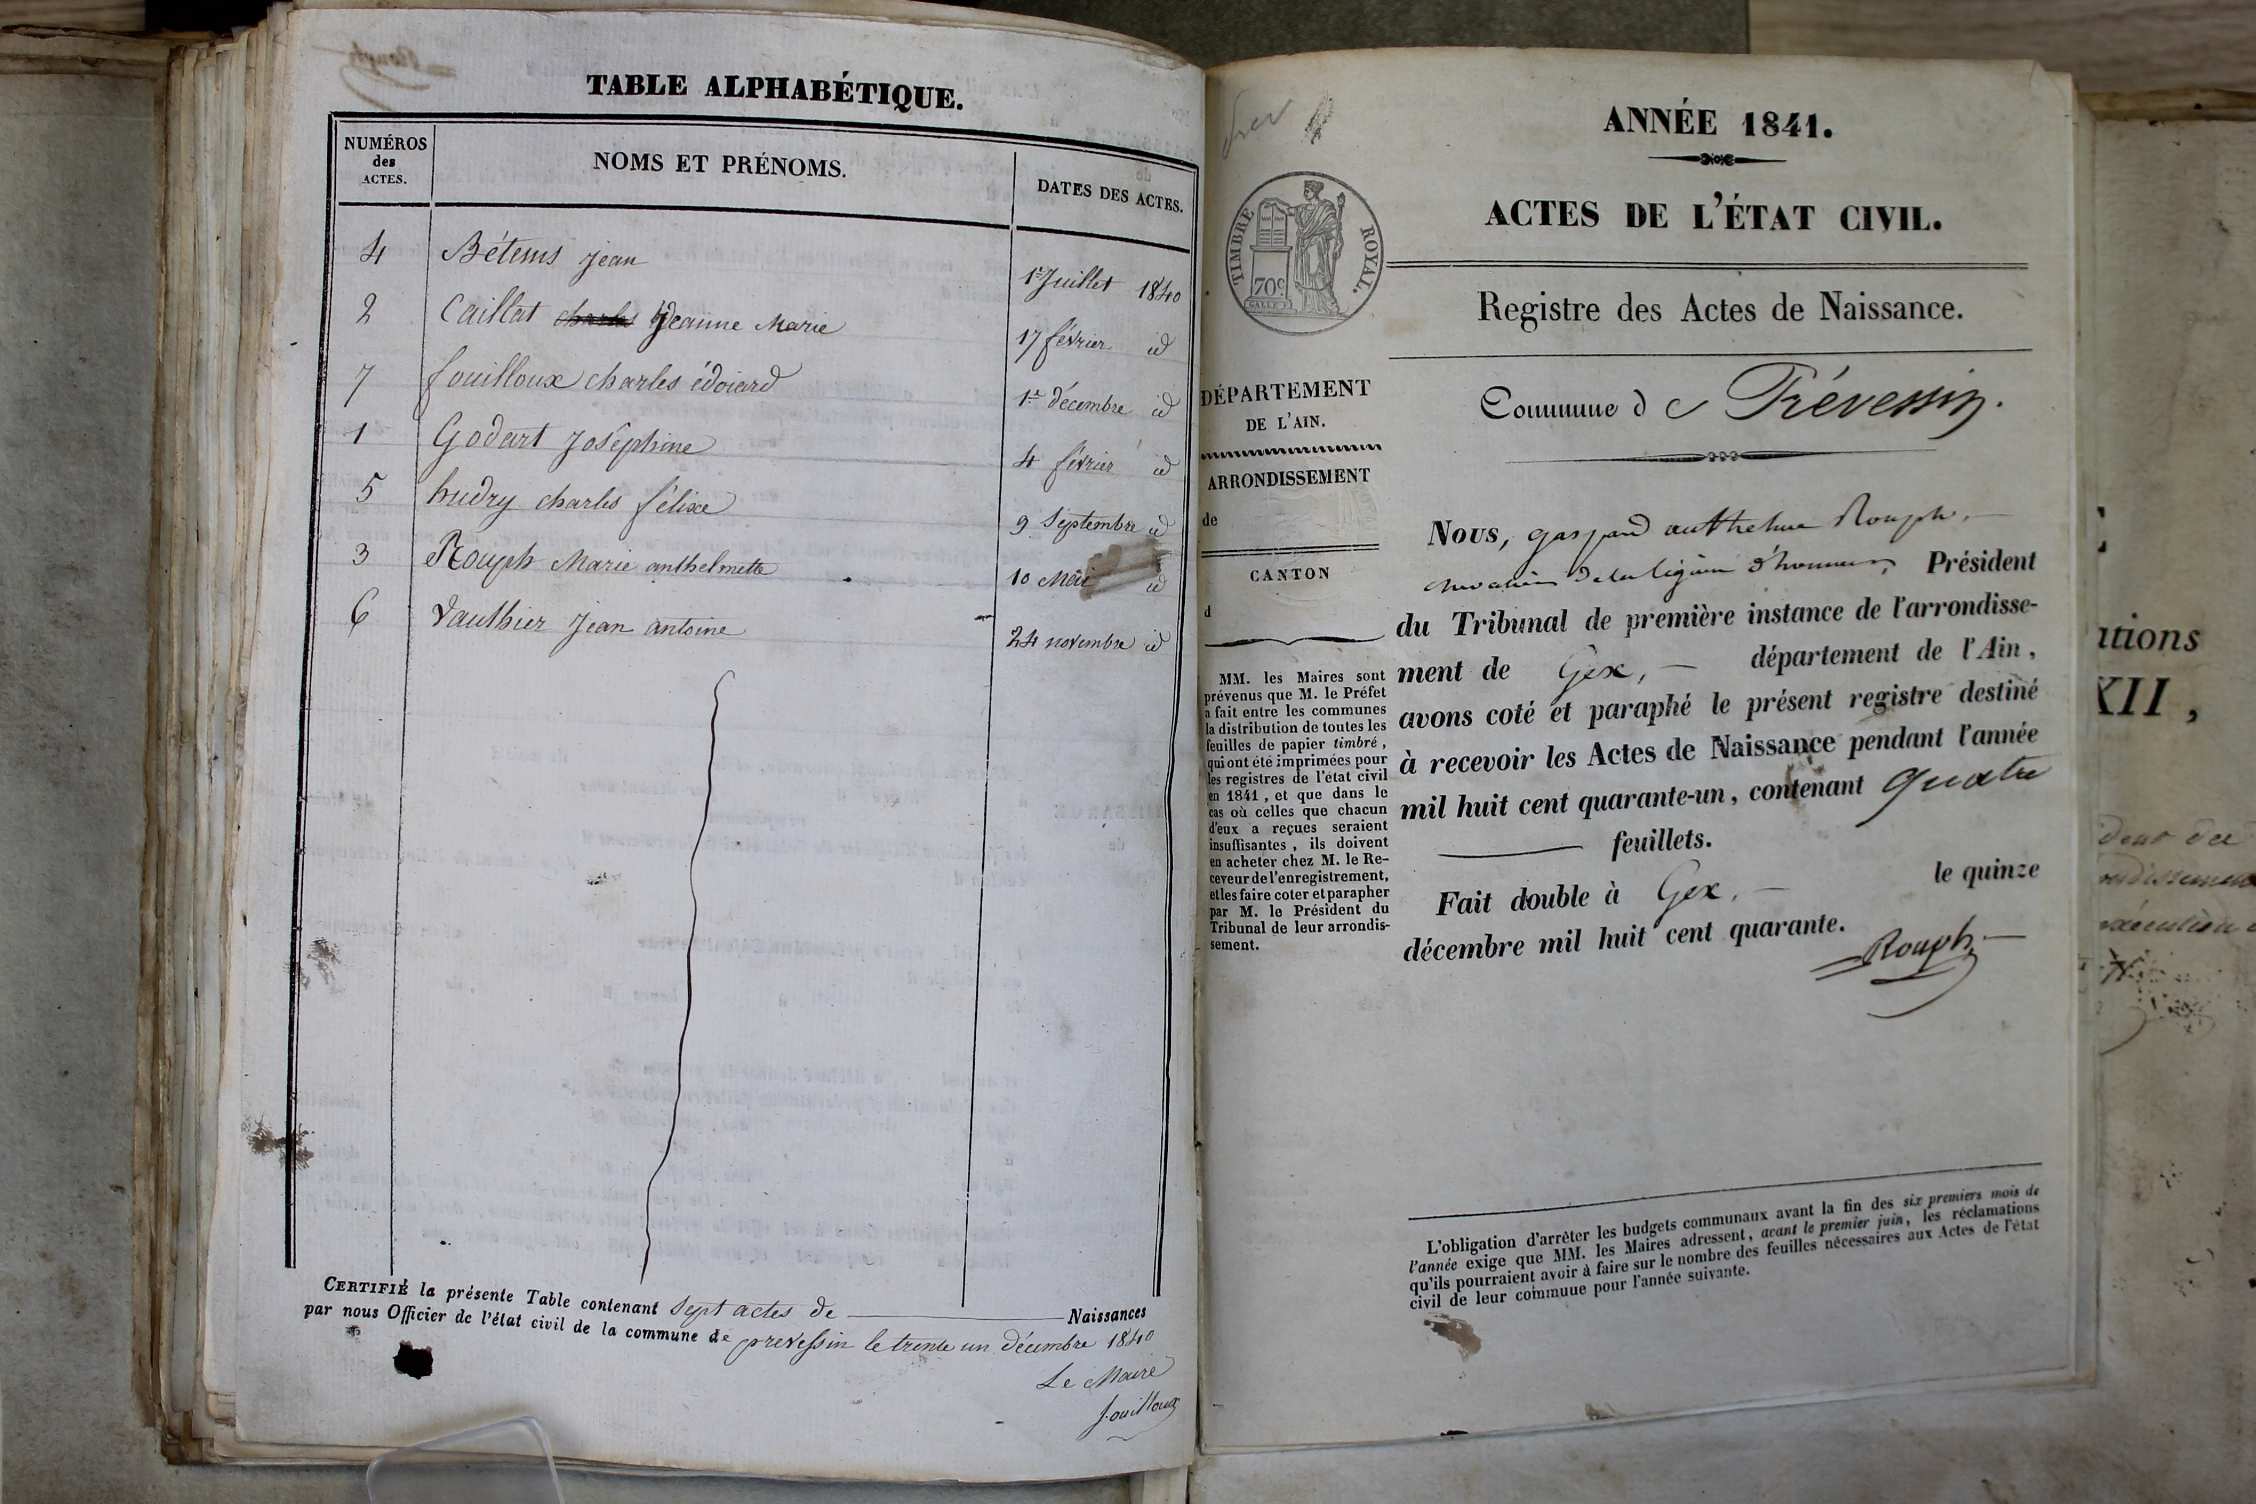 TABLE ALPHABÉTIQUE.
NUMÉROS
des
ACTES.
NOMS ET PRÉNOMS.
DATES DES ACTES.
4 Bétems jean 1er Juillet 1840
2 Caillat charles jeanne Marie 17 février id
7 fouilloux charles édoiard 1er décembre id
1 Godart Joséphine 4 février id
5 hudry charles félixe 9 Septembre id
3 Rouph Marie anthelmette 10 Mai id
6 Vauthier jean antoine 24 novembre id
CERTIFIÉ la présente Table contenant Sept actes de Naissances
par nous Officier de l'état civil de la commune de prevessin le trente un décembre 1840
Le Maire
fouilloux
ANNÉE 1841.
ACTES DE L'ÉTAT CIVIL.
TIMBRE ROYAL.
70c
Registre des Actes de Naissance.
Commune de Prévessin.
DÉPARTEMENT
DE L'AIN.
ARRONDISSEMENT
de
CANTON
d
MM. les Maires sont
prévenus que M. le Préfet
a fait entre les communes
la distribution de toutes les
feuilles de papier timbré,
qui ont été imprimées pour
les registres de l'état civil
en 1841, et que dans le
cas où celles que chacun
d'eux a reçues seraient
insuffisantes, ils doivent
en acheter chez M. le Re-
ceveur de l'enregistrement,
et les faire coter et parapher
par M. le Président du
Tribunal de leur arrondis-
sement.
Nous, gaspard anthelme Rouph,
chevalier de la légion d'honneur, Président
du Tribunal de première instance de l'arrondisse-
ment de Gex, département de l'Ain,
avons coté et paraphé le présent registre destiné
à recevoir les Actes de Naissance pendant l'année
mil huit cent quarante-un, contenant quatre
feuillets.
Fait double à Gex, le quinze
décembre mil huit cent quarante.
Rouph
L'obligation d'arrêter les budgets communaux avant la fin des six premiers mois de
l'année exige que MM. les Maires adressent, avant le premier juin, les réclamations
qu'ils pourraient avoir à faire sur le nombre des feuilles nécessaires aux Actes de l'état
civil de leur commune pour l'année suivante.
ations
XII,